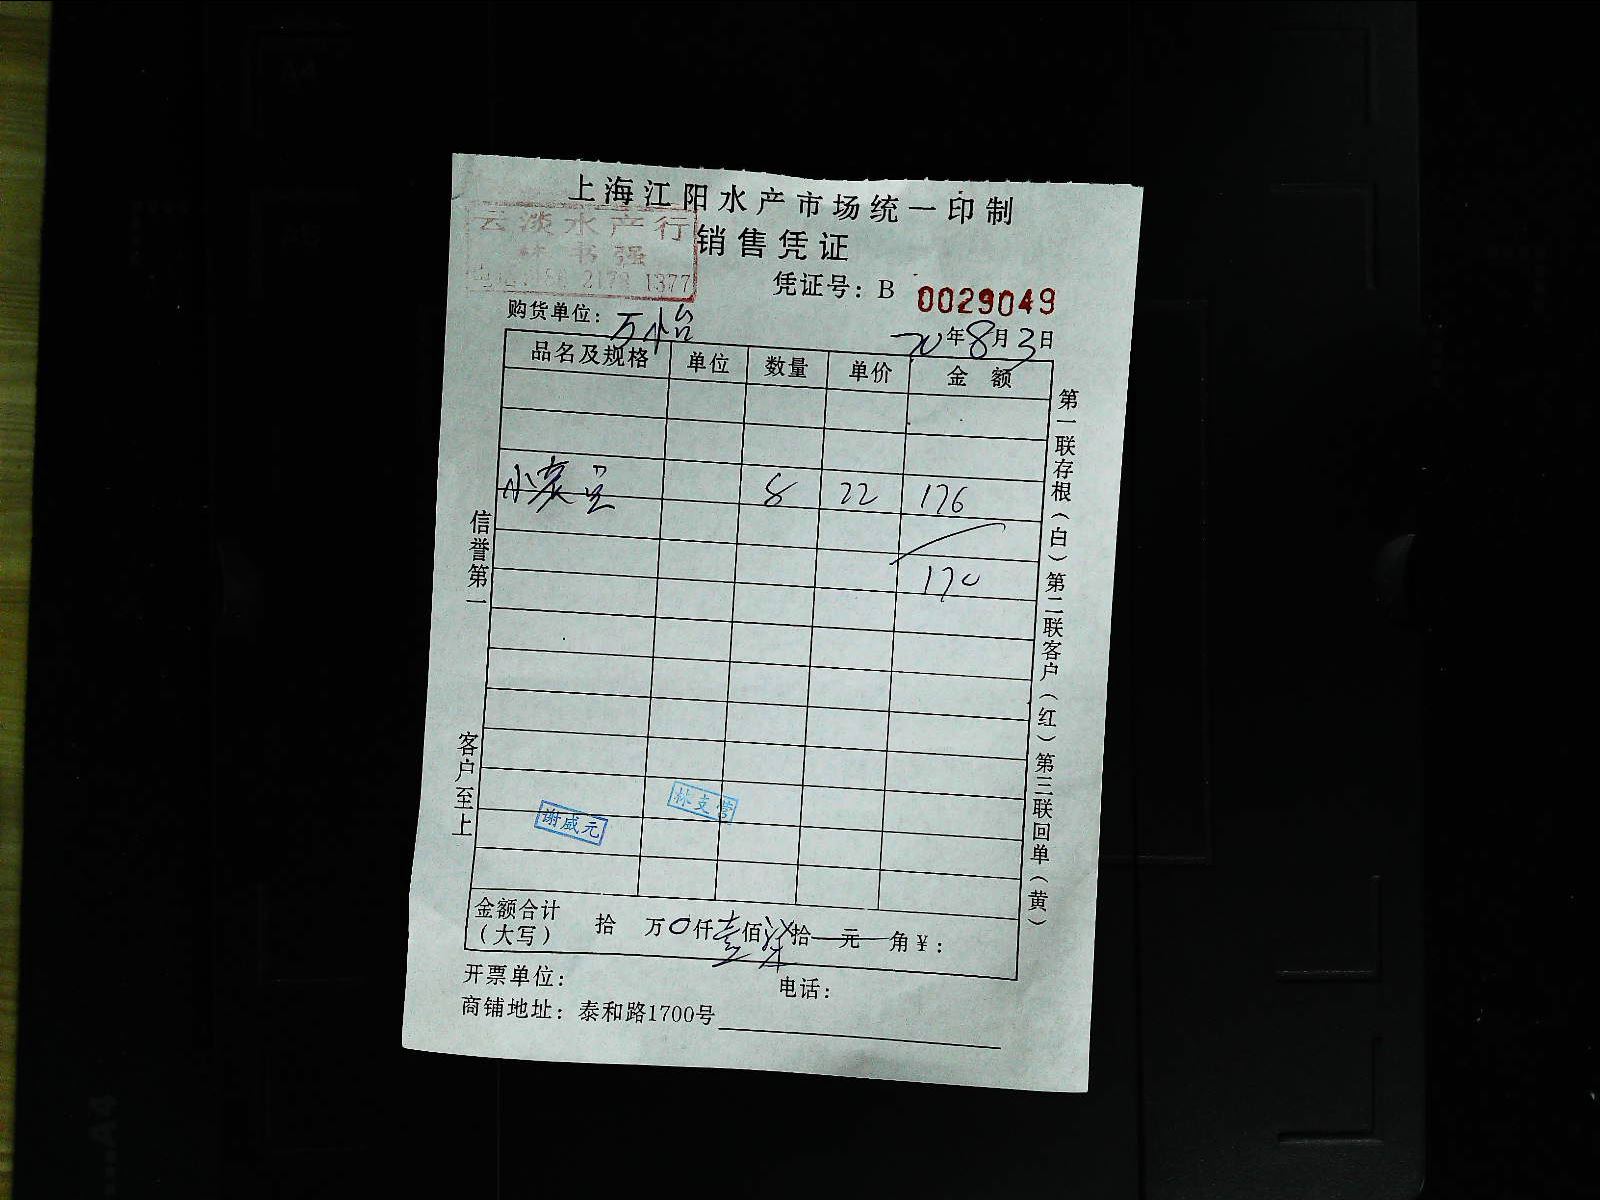 上海江阳水产市场统一印制
云淡水产行
销售凭证
林书强
2179 1377
凭证号：B 0029049
购货单位：万小怡
20年8月3日
品名及规格 单位 数量 单价 金额
8 22 176
170
谢威元
林支营
金额合计（大写） 拾 万0仟壹佰柒拾 元 角￥：
开票单位： 电话：
商铺地址：泰和路1700号
信誉第一 客户至上
第一联存根（白）第二联客户（红）第三联回单（黄）